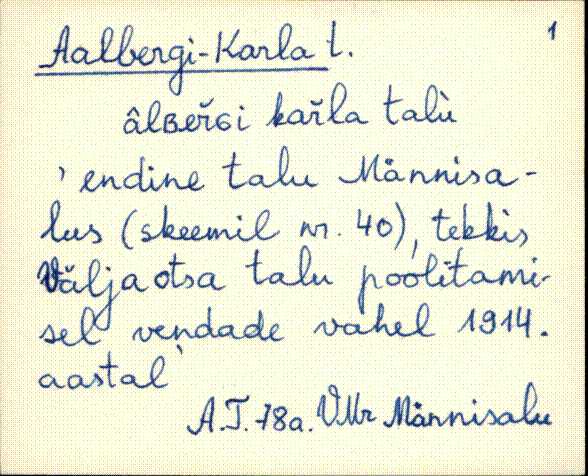 1
Aalbergi-Karla t.
âlʙeřɢi kařla talù
' endine talu Männisa-
lus (skeemil nr. 40), tekkis
Väljaotsa talu poolitami-
sel vendade vahel 1914.
aastal'
A.T. 78a. VMr Männisalu